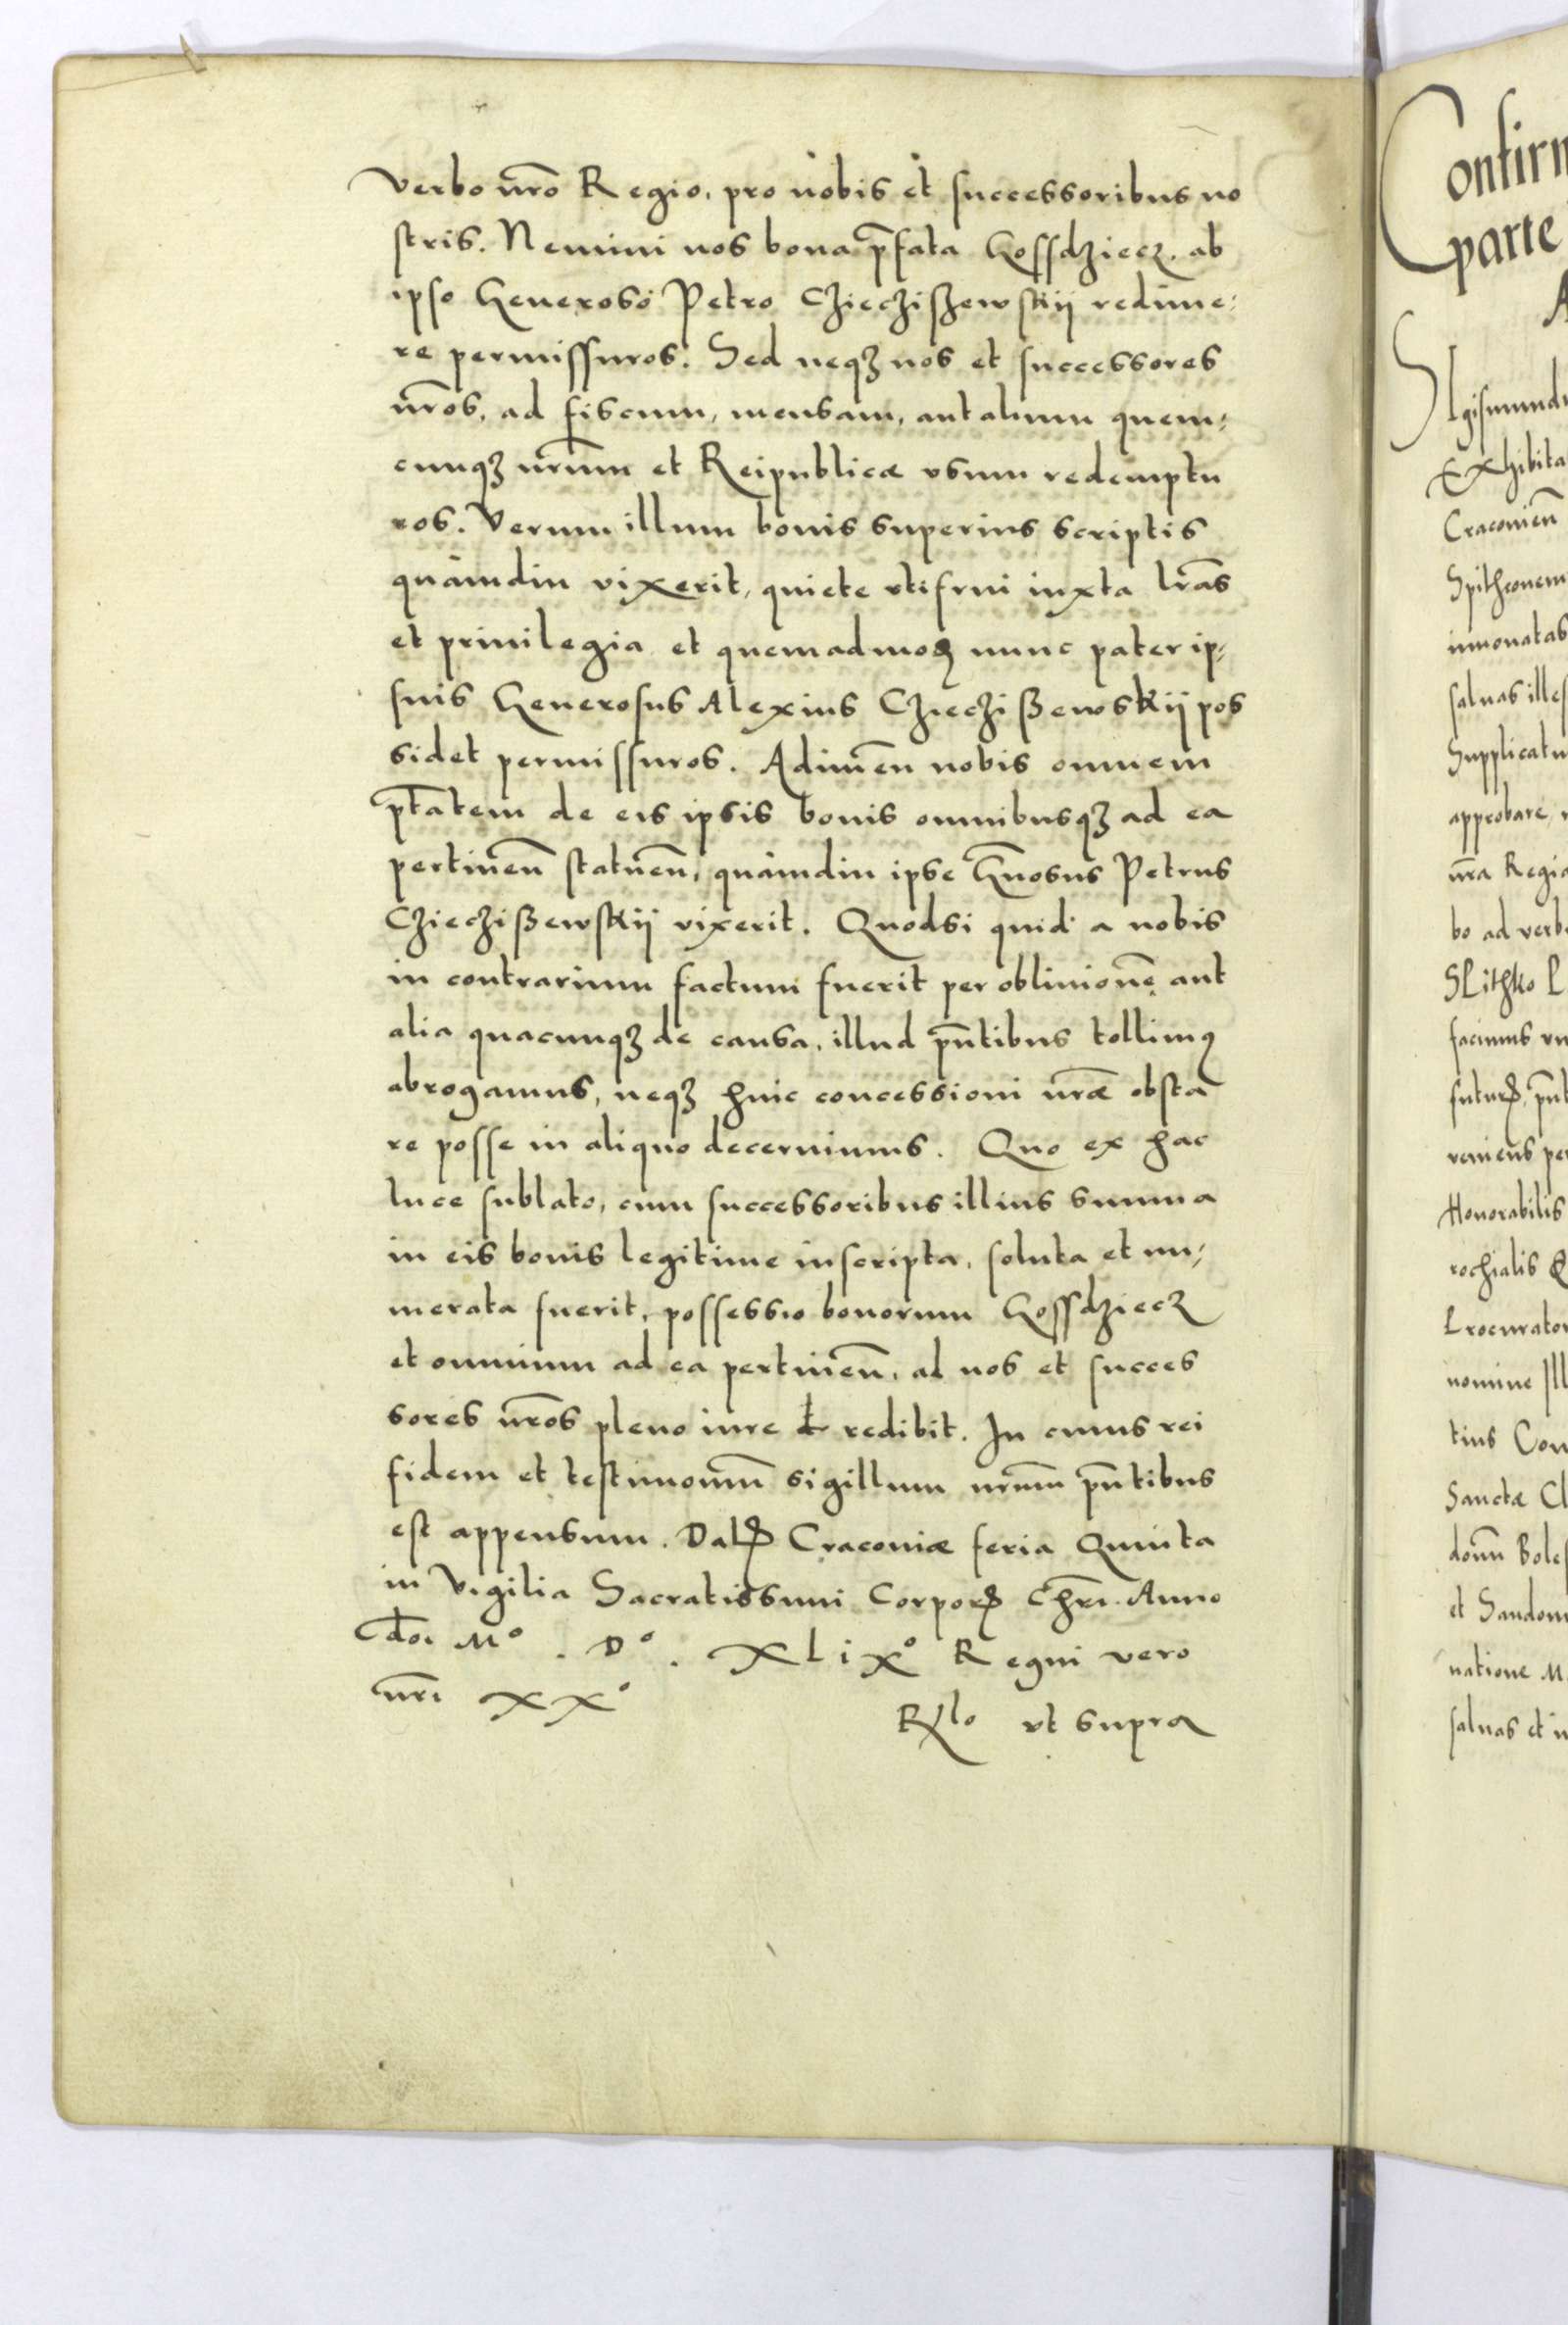 verbo nr̄o Regio, pro nobis et successoribus no
stris. Nemini nos bona p̄fata Gossdziecz. ab
ipso Generoso Petro Cziecziszewskij redime:
re permissuros. Sed neqꝫ nos et successores
nr̄os, ad fiscum, mensam, aut alium quem:
cunqꝫ nr̄um et Reipublicæ vsum redemptu
ros. Verum illum bonis superius scriptis
quamdiu vixerit, quiete vtifrui iuxta lr̄as
et priuilegia et quemadmoꝫ nunc pater ip:
sius Generosus Alexius Cziecziszewskij pos
sidet permissuros. Adimen̄ nobis omnem
ptātem de eis ipsis bonis omnibusqꝫ ad ea
pertinen̄ statuen̄, quamdiu ipse Gn̄osus Petrus
Czieczißewskij vixerit. Quodsi quid a nobis
in contrarium factum fuerit per obliuionē aut
alia quacunqꝫ de causa, illud pn̄tibus tollimꝰ
abrogamus, neqꝫ huic concessioni nr̄æ obsta
re posse in aliquo decernimus. Quo ex hac
luce sublato, cum successoribus illius summa
in eis bonis legitime inscripta, soluta et nu:
merata fuerit, possessio bonorum Gossdziecz
et omnium ad ea pertinen̄, ad nos et succes
sores nr̄os pleno iure redibit. In cuius rei
fidem et testimoniūm sigillum nr̄um pn̄tibus
est appensum. Datꝭ Cracoviæ feria Quinta
in Vigilia Sacratissimi Corporꝭ Chr̄i. Anno
Dn̄i Mº . Dº . XLixº Regni vero
nr̄i XXº
Rl̄o vt supra
Confirm
parte
A
SIgismundu
Exhibita
Cracovien̄
Spithconem
innouatas
saluas illes
Supplicatu
approbare,
nr̄a Regia
bo ad verb
facimus
futurꝭ, pn̄t
veniens pe
Honorabilis
rochialis
Procurator
nomine Ill
tius Con
Sanctæ Cl
domn̄ Boles
et Sandom
natione M
saluas et i